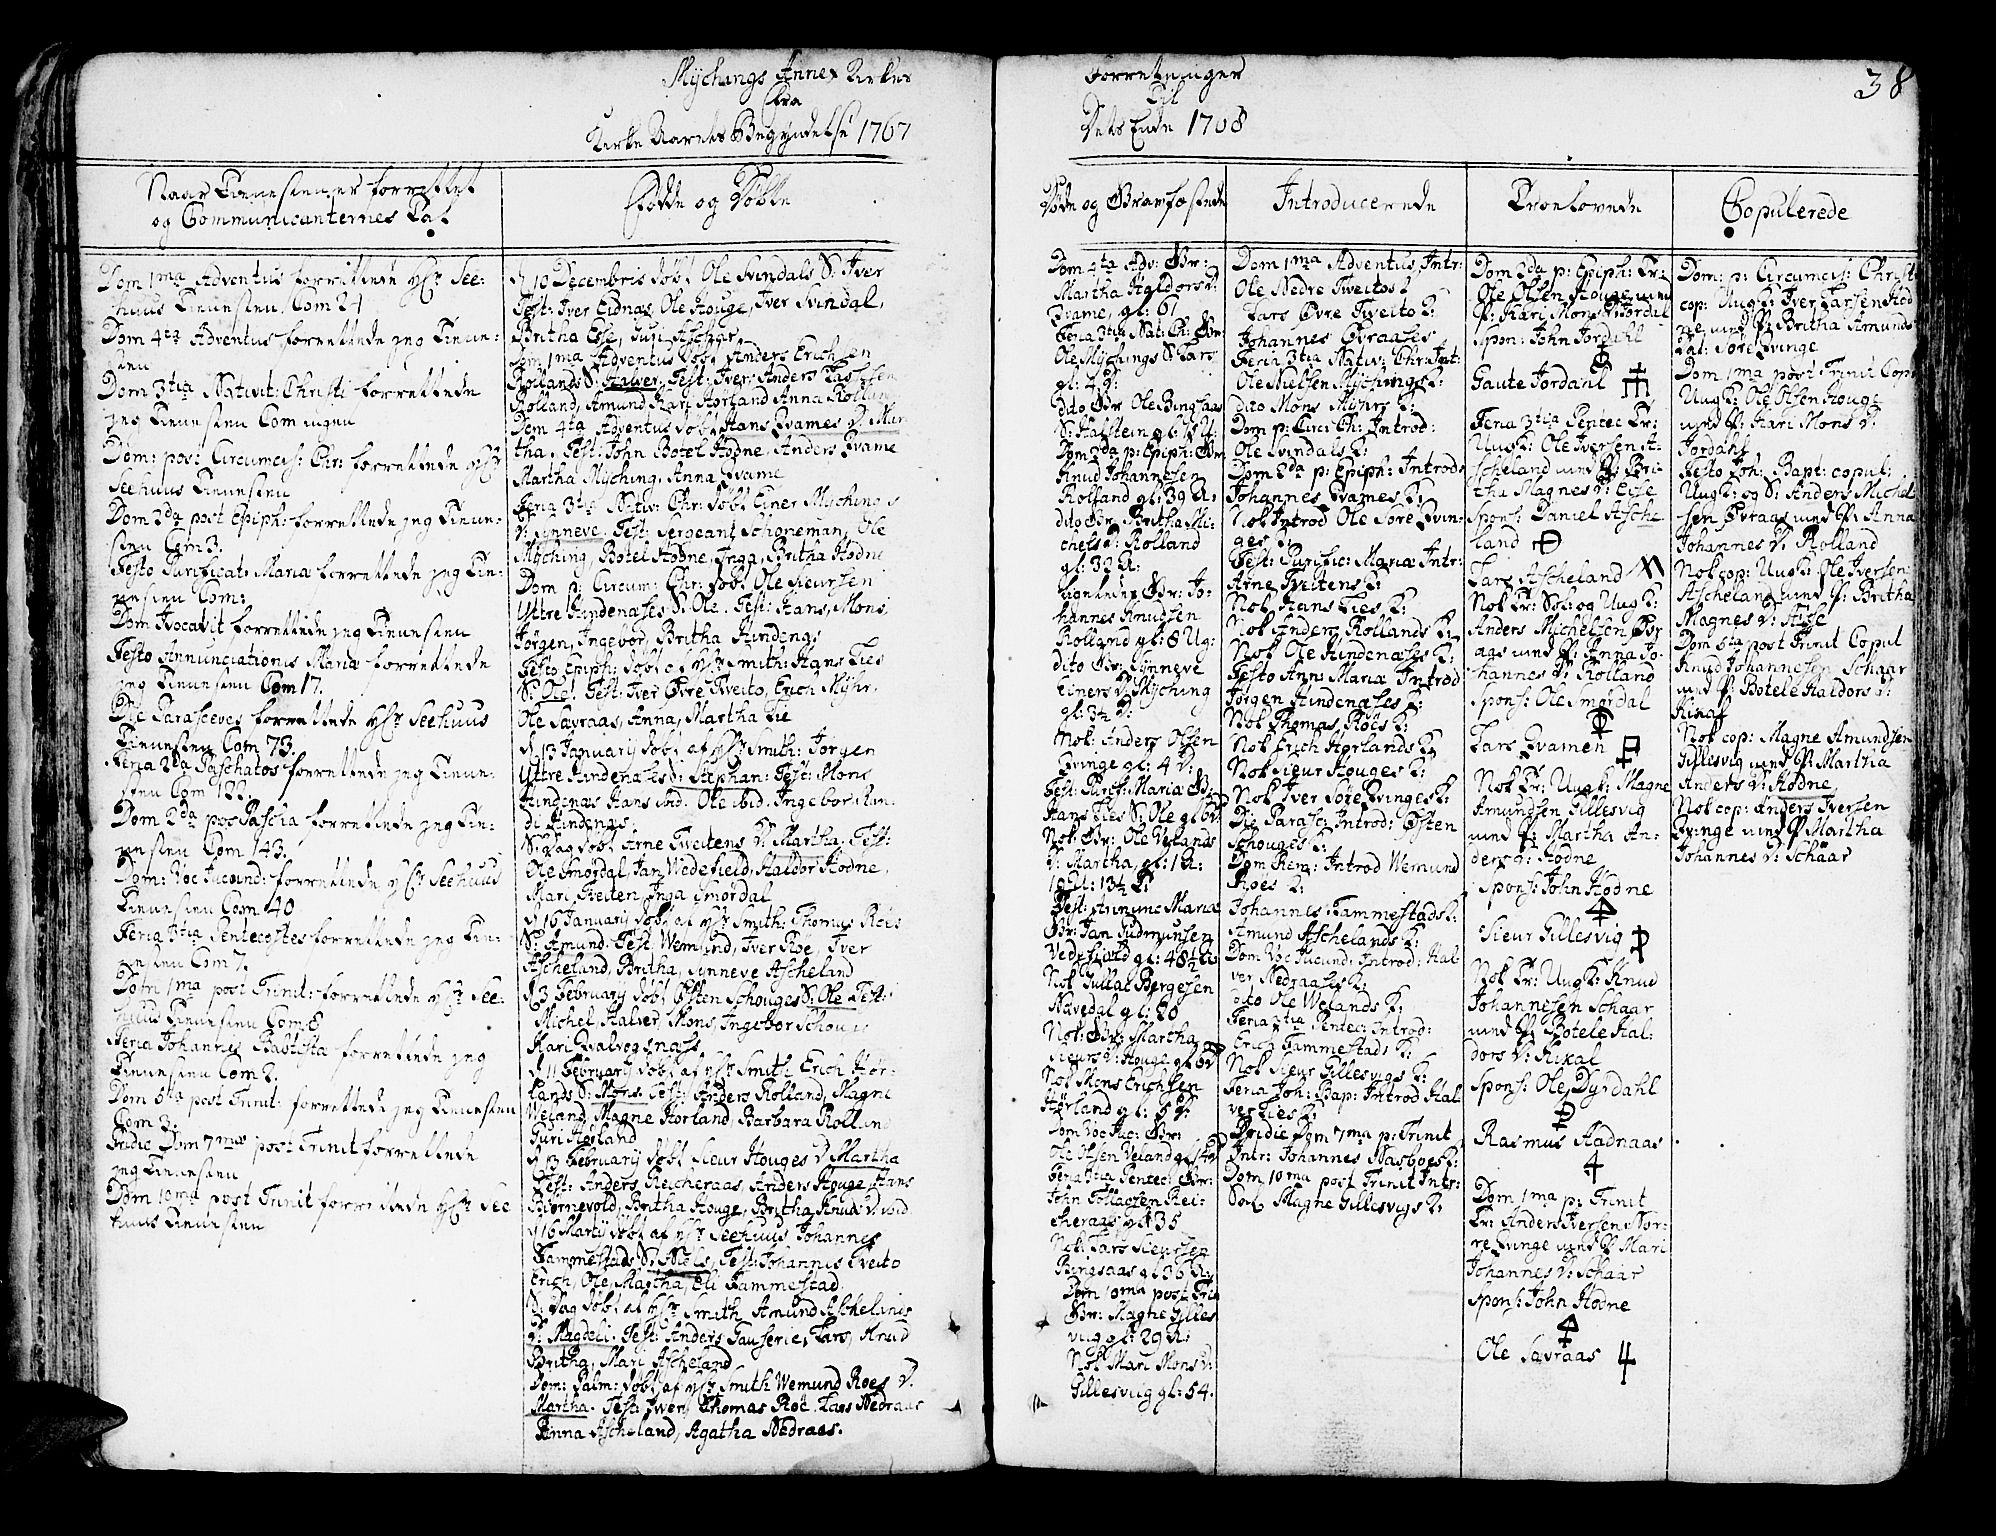 Mÿchangs Annex Kirkes
fra
Kirke Aarets Begyndelse 1767
Naar Tienesten er forrettet
og Communicanternes Tal
Dom 1ma Adventus forrettede Hr See-
huus Tienesten Com 21
Dom 4ta Adventus forrettede jeg Tiene-
sten
Dom 3tia Nativit: Christi forrettede
jeg Tienesten Com ingen
Dom: post: Circumcis: Chr: forrettede Hr
Seehuus Tienesten
Dom 2da post Epiph: forrettede jeg Tiene-
sten Com 3.
Festo Purificat: Mariæ forrettede jeg Tie-
nesten Com:
Dom Invocavit forrettede jeg Tienesten
Festo Annunciationis Mariæ forrettede
jeg Tienesten Com 17.
Die Parasceves forrettede Hr Seehuus
Tienesten Com 73.
Feria 2da Paschatos forrettede jeg Tiene-
sten Com 122.
Dom 2da pos Pascha forrettede jeg Tie-
nesten Com 143.
Dom: Voc Jucund: forrettede Hr Seehuus
Tienesten Com 40
Feria 3tia Pentecostes forrettede jeg Tie-
nesten Com 7.
Dom 1ma post Trinit: forrettede Hr See-
huus Tienesten Com: 8
Feria Johannes Baptista forrettede jeg
Tienesten Com 2.
Dom 6ta post Trinit: forrettede jeg Tienesten
Com 3.
Pridie Dom 7mæ post Trinit forrettede
jeg Tienesten
Dom 10ma post Trinit forrettede Hr See
huus Tienesten
Fødde og Døbte
d 10 Decembris døbt Ole Svindals S: Iver
Test: Iver Eidnæs, Ole Houge, Iver Svindal,
Britha Esse, Susi Ascheger
Dom 1ma Adventus døbt Anders Erichsen
Rollands S: Halver, Test: Iver, Anders Larssen
Rolland, Amund, Kari Horland Anna Rolland
Dom 4ta Adventus døbt Hans Qvames D: Mar
tha. Test: John Botel Hodne, Anders Qvame
Martha Mÿching, Anna Qvame
Feria 3tia Nativ: Chr: døbt Einer Mÿchings
D: Sÿnneve, Test: Sergeant Schoneman, Ole
Mÿching, Botel Hodne, Inga, Britha Hodne
Dom p: Circum: Chr: døbt Ole Sieursen
Uttre Hindenæses S: Ole. Test: Hans, Mons,
Jørgen, Ingebor, Britha Hindenæs
Festo Epiph: døbt af Hr Smith: Hans Ties
S: Ole: Test: Iver Øvre Tweito, Erich Mÿhr,
Ole Savraas, Anna, Martha Tie
d 13 Januarÿ døbt af Hr Smith: Jørgen
Uttre Hindenæses S: Stephan: Test: Mons
Hindenæs Hans ibid. Ole ibid. Ingebor, Ran-
di Hindenæs.
S: Dag døbt Arne Tweitens D: Martha. Test:
Ole Smordal, Jan Wedefield, Haldor Hodne,
Mari Tveiten Inga Smordal
d 16 Januarÿ døbt af Hr Smith: Thomas Roes
S: Amund. Test: Wemund, Iver Roe, Iver
Ascheland, Britha, Sÿnneve Ascheland
d 3 Februarÿ døbt Østen Schouges S: Ole Test:
Michel, Halver, Mons, Ingebor Schouge
Kari Qvalvognæss
d 11 Februarÿ døbt af Hr Smith Erich Hor-
lands S: Mons. Test: Anders Rolland, Magne
Weland, Magne Horland, Barbara Rolland
Guri Horland
d 13 Februarÿ døbt Sieur Houges D Martha
Test: Anders Reicheraas, Anders Houge, Hans
Biørnevold, Britha Houge, Britha Knuds D ibid.
d 16 Martÿ døbt af Hr Seehuus Johannes
Tammestads S: Niels, Test: Johannis Tveito
Erich, Ole, Martha, Eli Tammestad
S: Dag døbt af Hr Smith Amund Aschelands
D: Magdeli. Test: Anders Gauserie, Lars, Knud
Britha, Mari Ascheland
Dom: Palm: døbt af Hr Smith Wemund Roes D.
Martha. Test: Iwer, Thomas Roe. Lars Nedraas
Anna Ascheland, Agatha Nedraas.
Forretninger
til
Dets Ende 1768
38
Døde og Gravfæstede
Dom 4ta Adv: Gr:
Martha Haldors D:
Qvame, gl: 61
Feria 3tia Nat: Ch: Gr:
Ole Mÿchings S: Lars
gl: 4 D:
dito Gr: Ole Bingsaas
S: Halstein gl. 6 U:
Dom 2da p: Epiph: Gr:
Knud Johannesen
Rolland gl: 39 A:
dito Gr: Britha Mi-
chels D: Rolland
gl: 32 A:
ligeledes Gr: Jo-
hannes Knudsen
Rolland gl: 8 Ug:
dito Gr: Sÿnneve
Einers D: Mÿching
gl: 3½ D:
Nok: Anders Olsen
Qvinge gl: 4 D:
Fest: Purif: Mariæ Gr:
Hans Ties S: Ole gl 6 D
Nok: Gr: Ole Velands
D: Martha, gl: 1 A:
10 U: 13½ D:
Fest: Annunc Mariæ
Gr: Jan Gudmunsen
Vedefield gl: 48½ A
Nok Gullat Bergesen
Navedal gl: 20
Nok: Gr: Martha
Sieurs D: Houge gl 6 D
Nok Mons Erichsen
Horland gl: 5 D:
Dom Voc Juc: Gr:
Ole Olsen Veland gl
Feria 3tia Pentec: Gr:
John Tollagsen Rei-
cheraas gl 35
Nok: Lars Sieursen
Bingsaas gl 36 A:
Dom 10ma post Trin
Gr: Magne Gilles
viig gl: 29 A:
Nok Mari Mons D:
Gillesviig gl: 54.
Introducerede
Dom 1ma Adventus, Intr:
Ole Nedre Tweitos K:
Lars Øvre Tweito K:
Johannes Øvraases
Feria 3tia Nativ: Chr: Int:
Ole Nielsen Mÿchings K:
dito Mons Mÿhrs K:
Dom p: Circ: Ch: Introd:
Ole Svindals K:
Dom 2da p: Epiph: Introd:
Johannes Qvames K:
Nok Introd Ole Søre Qvin-
ges K:
Fest: Purific: Mariæ Intr:
Arne Tveitens K:
Nok Hans Ties K:
Nok Anders Rollands K:
Nok Ole Hindenæses K:
Festo Ann: Mariæ Introd
Jørgen Hindenæses K:
Nok Thomas Roes K:
Nok Erich Horlands K:
Nok Sieur Houges K:
Nok Iver Søre Qvinges K:
Die Parasc: Introd: Østen
Schouges K:
Dom Rem: Introd Wemund
Roes K:
Johannes Tammestads K:
Amund Aschelands K:
Dom Voc Jucund: Introd: Hal
ver Nedraases K:
dito Ole Welands K:
Feria 3tia Pentec: Introd:
Erich Tammestads K:
Nok Sieur Gillesvigs K:
Feria Joh: Bap: Introd Hal
ver Ties K:
Pridie Dom 7ma p: Trinit
Intr: Johannes Nasboes K:
Dom 10ma post Trinit Intr:
Sol. Magne Gillesvigs K:
Trolovede
Dom 2da p: Epiph: Tr:
Ole Olsen Houge med
P: Kari Mons D: Jordal
Spon: John Jordahl
Gaute Jordahl
Feria 3tia Pentec Tr:
Ung K: Ole Iversen A-
scheland med P: Bri-
tha Magnes D: Eise
Spons: Daniel Asche
land
Lars Ascheland
Nok Tr: Sol: og Ung K:
Anders Michelsen Øvr
aas med P: Anna Jo-
hannes D: Rolland
Spons: Ole Smordal
Lars Qvamen
Nok Tr: Ung K: Magne
Amundsen Gillesvig
med P: Martha An-
ders D: Hodne
Spons: John Hodne
Sieur Gillesvig
Nok Tr: Ung K: Knud
Johannesen Schaar
med P: Botele Hal-
dors D: Kixal
Spons: Ole Dÿrdahl
Rasmus Aadnaas
Dom 1ma p: Trinit
Tr: Anders Iversen Nor-
re Qvinge med P Mari
Johannes D: Schaar
Spons: John Hodne
Ole Savraas
Copulerede
Dom: p: Circumcis: Christi
cop: Ung K: Iver Larsen Hod
ne med P: Britha Amunds
Dat: Søre Qvinge
Dom 1ma post Trinit Cop:
Ung K: Ole Olsen Houge
med P: Kari Mons D:
Jordahl
Festo Joh: Bapt: copul:
Ung K: og S: Anders Michel
sen Øvraas med P: Anna
Johannes D: Rolland
Nok cop: Ung K: Ole Iversen
Ascheland med P: Britha
Magnes D: Eise
Dom 6ta post Trinit Copul
Knud Johannesen Schaar
med P: Botele Haldors D:
Kixal
Nok cop: Magne Amundsen
Gillesvig med P Martha
Anders D: Hodne
Nok cop: Anders Iversen
Qvinge med P Martha
Johannes D: Schaar